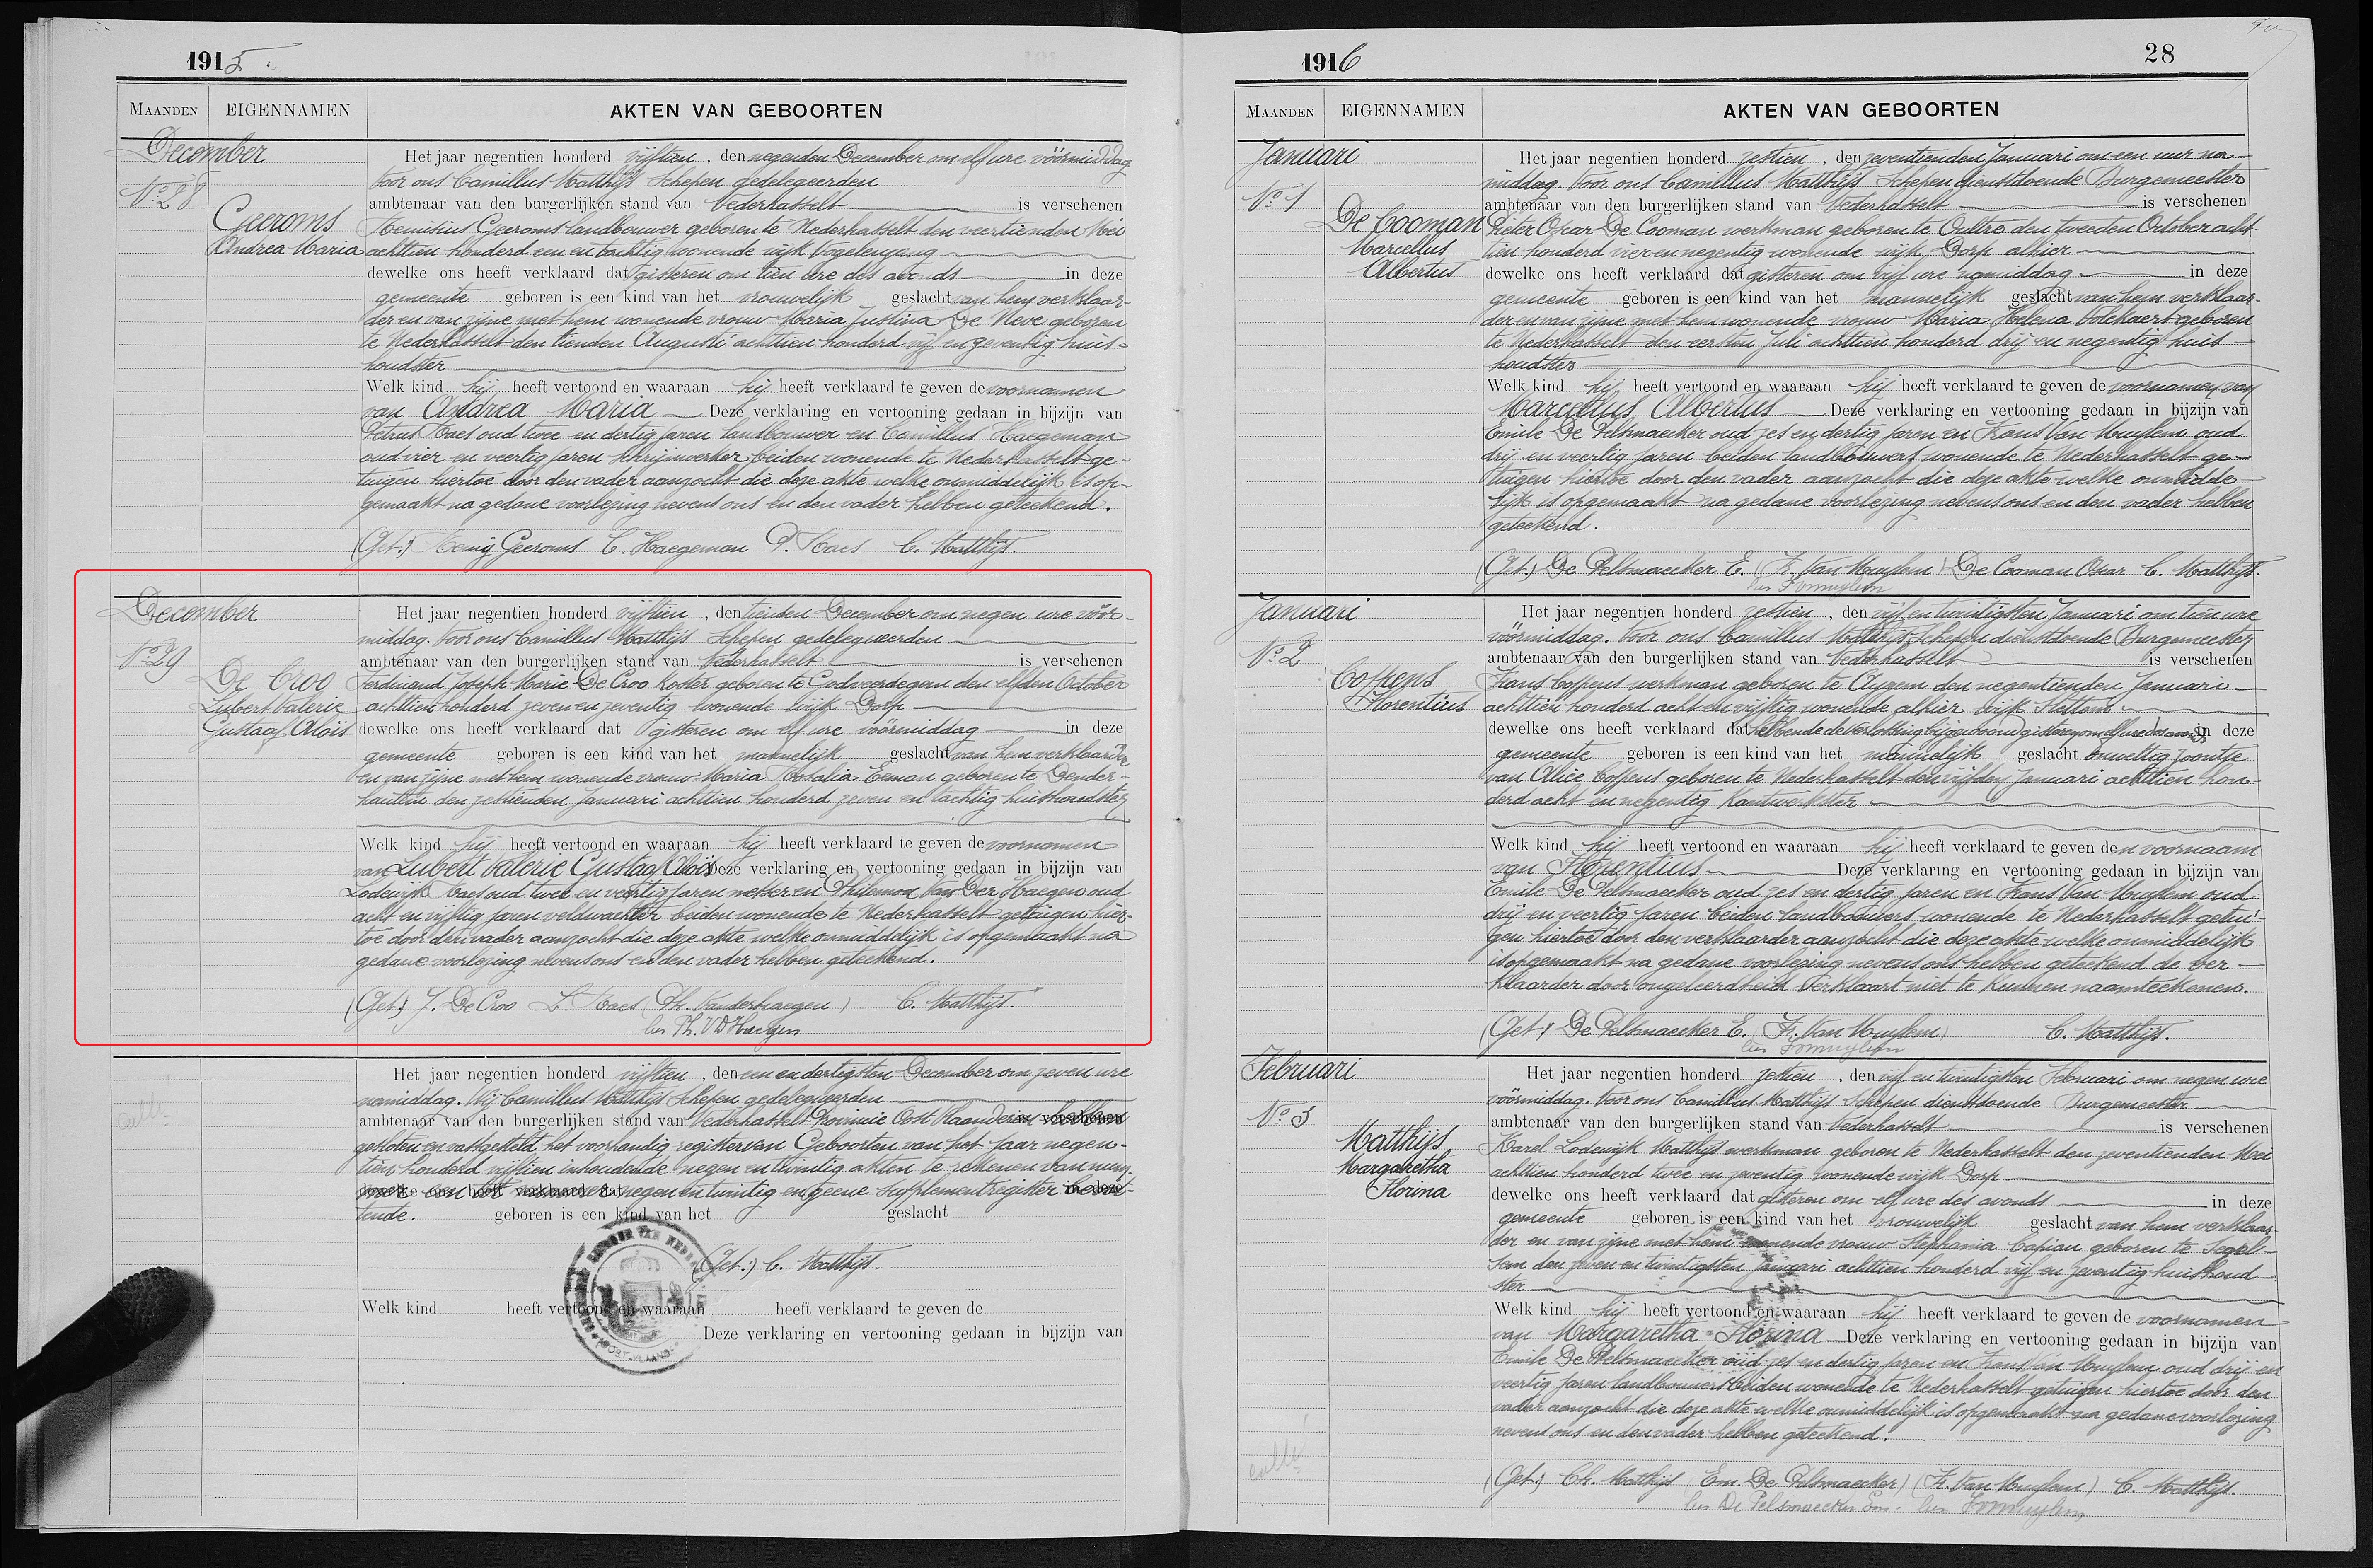 1915.
MAANDEN EIGENNAMEN AKTEN VAN GEBOORTEN
December
No 28
Geeroms
Andrea Maria
Het jaar negentien honderd vijftien, den negenden December om elf ure vóórmiddag
Voor ons Camillus Matthijs Schepen gedelegeerden
ambtenaar van den burgerlijken stand van Nederhasselt is verschenen
Remisius Geeroms landbouwer geboren te Nederhasselt den veertienden Mei
achttien honderd een en tachtig wonende wijk Vogelenzang
dewelke ons heeft verklaard dat gisteren om tien ure des avonds in deze
gemeente geboren is een kind van het vrouwelijk geslacht van hem verklaar-
der en van zijne met hem wonende vrouw Maria Justina De Neve geboren
te Nederhasselt den tienden Augusti achttien honderd vijf en zeventig huis-
houdster
Welk kind hij heeft vertoond en waaraan hij heeft verklaard te geven de voornamen
van Andrea Maria Deze verklaring en vertooning gedaan in bijzijn van
Petrus Maes oud twee en dertig jaren landbouwer en Camillus Haegeman
oud vier en veertig jaren schrijnwerker beiden wonende te Nederhasselt ge-
tuigen hiertoe door den vader aanzocht die deze akte welke onmiddelijk is op-
gemaakt na gedane voorlezing nevens ons en den vader hebben geteekend.
(Get.) Remij Geeroms C. Haegeman P. Maes C. Matthijs.
December
No 29
De Croo
Lubert Valerie
Gustaaf Aloïs
Het jaar negentien honderd vijftien, den tienden December om negen ure vóór-
middag. Voor ons Camillus Matthijs Schepen gedelegueerden
ambtenaar van den burgerlijken stand van Nederhasselt is verschenen
Ferdinand Joseph Marie De Croo koster geboren te Godveerdegem den elfden October
achttien honderd zeven en zeventig wonende wijk Dorp
dewelke ons heeft verklaard dat gisteren om elf ure vóórmiddag in deze
gemeente geboren is een kind van het mannelijk geslacht van hem verklaarder
en van zijne met hem wonende vrouw Maria Rosalia Eeman geboren te Dender-
hautem den zestienden Januari achttien honderd zeven en tachtig huishoudster
Welk kind hij heeft vertoond en waaraan hij heeft verklaard te geven de voornamen
van Lubert Valerie Gustaaf Aloïs Deze verklaring en vertooning gedaan in bijzijn van
Lodewijk Maes oud twee en veertig jaren metser en Philemon Van Der Haegen oud
acht en vijftig jaren veldwachter beiden wonende te Nederhasselt getuigen hier-
toe door den vader aanzocht die deze akte welke onmiddelijk is opgemaakt na
gedane voorlezing nevens ons en den vader hebben geteekend.
(Get.) J. De Croo L. Maes (Ph. Vanderhaegen) C. Matthijs.
lees Ph. V D Haegen
Het jaar negentien honderd vijftien, den een en dertigsten December om zeven ure
namiddag. Wij Camillus Matthijs Schepen gedelegeerden
ambtenaar van den burgerlijken stand van Nederhasselt Provincie Oost Vlaanderen hebben
gesloten en vastgesteld het voorhandig register van Geboorten van het jaar negen-
tien honderd vijftien inhoudende negen en twintig akten te rekenen van num-
mer een tot nummer negen en twintig en geene supplementregister bevat-
tende. geboren is een kind van het geslacht
(Get.) C. Matthijs.
Welk kind heeft vertoond en waaraan heeft verklaard te geven de
Deze verklaring en vertooning gedaan in bijzijn van
1916 28
MAANDEN EIGENNAMEN AKTEN VAN GEBOORTEN
Januari
No 1
De Cooman
Marcellus
Albertus
Het jaar negentien honderd zestien, den zeventienden Januari om een uur na-
middag. Voor ons Camillus Matthijs Schepen dienstdoende Burgemeester
ambtenaar van den burgerlijken stand van Nederhasselt is verschenen
Pieter Oscar De Cooman werkman geboren te Oultre den tweeden October acht-
tien honderd vier en negentig wonende wijk Dorp alhier
dewelke ons heeft verklaard dat gisteren om vijf ure namiddag in deze
gemeente geboren is een kind van het mannelijk geslacht van hem verklaar-
der en van zijne met hem wonende vrouw Maria Helena Volckaert geboren
te Nederhasselt den eersten Juli achttien honderd drij en negentig huis-
houdster
Welk kind hij heeft vertoond en waaraan hij heeft verklaard te geven de voornamen van
Marcellus Albertus Deze verklaring en vertooning gedaan in bijzijn van
Emile De Pelsmaecker oud zes en dertig jaren en Frans Van Muylem oud
drij en veertig jaren beiden landbouwers wonende te Nederhasselt ge-
tuigen hiertoe door den vader aanzocht die deze akte welke onmidde-
lijk is opgemaakt na gedane voorlezing nevens ons en den vader hebben
geteekend.
(Get.) De Pelsmaecker E. (F. Van Muylem) De Cooman Oscar C. Matthijs.
Januari
No 2
Coppens
Florentius
Het jaar negentien honderd zestien, den vijf en twintigsten Januari om tien ure
vóórmiddag. Voor ons Camillus Matthijs Schepen dienstdoende Burgemeester
ambtenaar van den burgerlijken stand van Nederhasselt is verschenen
Frans Coppens werkman geboren te Aygem den negentienden Januari
achttien honderd acht en vijftig wonende alhier wijk Stettem
dewelke ons heeft verklaard dat hebbende de verlossing bijgewoond gisteren om elf ure des avonds in deze
gemeente geboren is een kind van het mannelijk geslacht onwettig zoontje
van Alice Coppens geboren te Nederhasselt den vijfden Januari achttien hon-
derd acht en negentig kantwerkster
Welk kind hij heeft vertoond en waaraan hij heeft verklaard te geven den voornaam
van Florentius Deze verklaring en vertooning gedaan in bijzijn van
Emile De Pelsmaecker oud zes en dertig jaren en Frans Van Muylem oud
drij en veertig jaren beiden landbouwers wonende te Nederhasselt getui-
gen hiertoe door den verklaarder aanzocht die deze akte welke onmiddelijk
is opgemaakt na gedane voorlezing nevens ons hebben geteekend de ver-
klaarder door ongeleerdheid verklaart niet te kunnen naamteekenen.
(Get.) De Pelsmaecker E. (F. Van Muylem) C. Matthijs.
Februari
No 3
Matthijs
Margaretha
Florina
Het jaar negentien honderd zestien, den vijf en twintigsten Februari om negen ure
vóórmiddag. Voor ons Camillus Matthijs Schepen dienstdoende Burgemeester
ambtenaar van den burgerlijken stand van Nederhasselt is verschenen
Karel Lodewijk Matthijs werkman geboren te Nederhasselt den zeventienden Mei
achttien honderd twee en zeventig wonende wijk Dorp
dewelke ons heeft verklaard dat gisteren om elf ure des avonds in deze
gemeente geboren is een kind van het vrouwelijk geslacht van hem verklaar-
der en van zijne met hem wonende vrouw Stephania Capiau geboren te Segel-
sem den zeven en twintigsten Januari achttien honderd vijf en zeventig huishoud-
ster
Welk kind hij heeft vertoond en waaraan hij heeft verklaard te geven de voornamen
van Margaretha Florina Deze verklaring en vertooning gedaan in bijzijn van
Emile De Pelsmaecker oud zes en dertig jaren en Frans Van Muylem oud drij en
veertig jaren landbouwers beiden wonende te Nederhasselt getuigen hiertoe door den
vader aanzocht die deze akte welke onmiddelijk is opgemaakt na gedane voorlezing
nevens ons en den vader hebben geteekend.
(Get.) Ch. Matthijs (Em. De Pelsmaecker) (F. Van Muylem) C. Matthijs.
lees De Pelsmaecker Em.